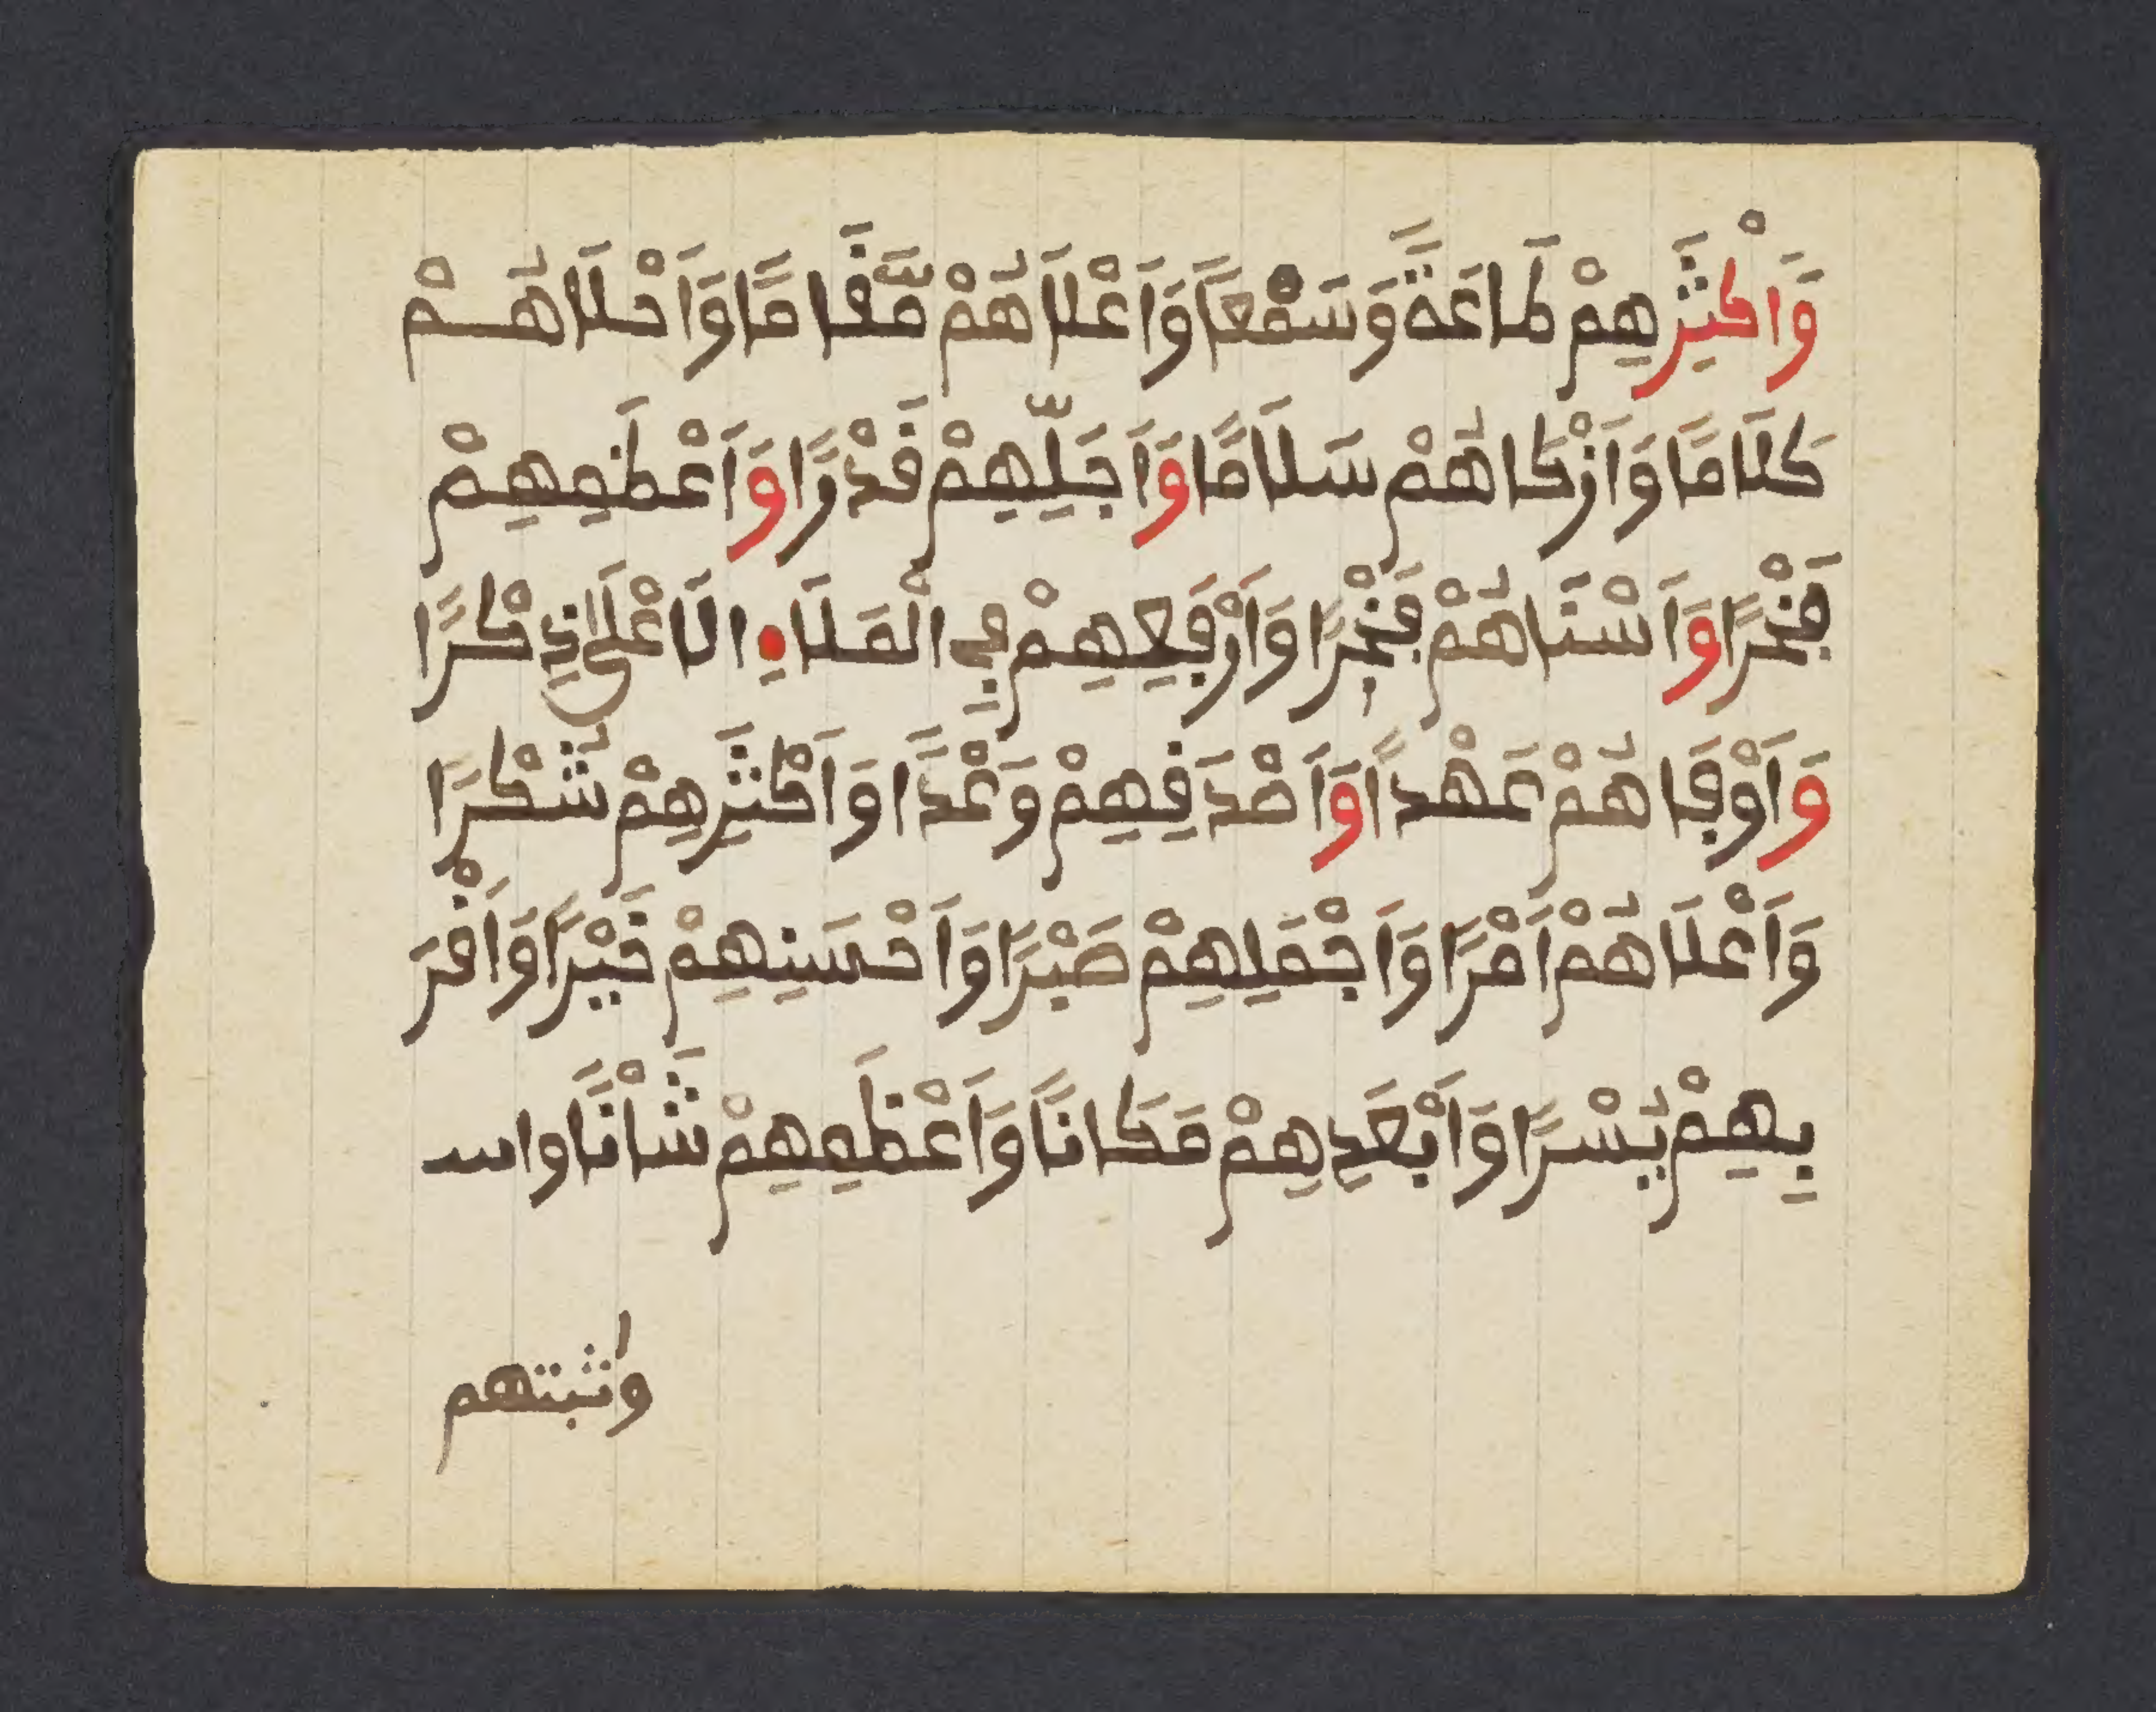 وَأَكْثَرِهِمْ طَاعَةً وَسَمْعًا وَأَعْلَاهُمْ مَّقَامًا وَأَحْلَاهُمْ
كَلَامًا وَأَزْكَاهُمْ سَلَامًا وَأَجَلِّهِمْ قَدْرًا وَأَعْظَمِهِمْ
فَخْرًا وَأَسْنَاهُمْ فَخْرًا وَأَرْفَعِهِمْ فِي الْمَلَإِ الَاعْلَى ذِكْرًا
وَأَوْفَاهُمْ عَهْدًا وَأَصْدَقِهِمْ وَعْدًا وَأَكْثَرِهِمْ شُكْرًا
وَأَعْلَاهُمْ أَمْرًا وَأَجْمَلِهِمْ صَبْرًا وَأَحْسَنِهِمْ خَيْرًا وَأَقْرَ
بِهِمْ يُسْرًا وَأَبْعَدِهِمْ مَكَانًا وَأَعْظَمِهِمْ شَأْنًا
واثبتهم